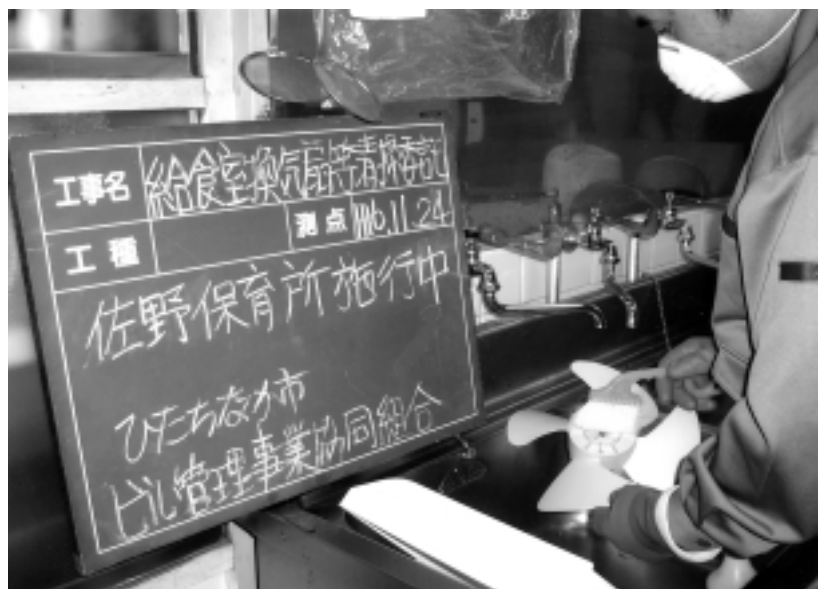 工事名 給食室換気扇等清掃委託
工種 測点 H16.11.24
佐野保育所施行中
ひたちなか市
ビル管理事業協同組合